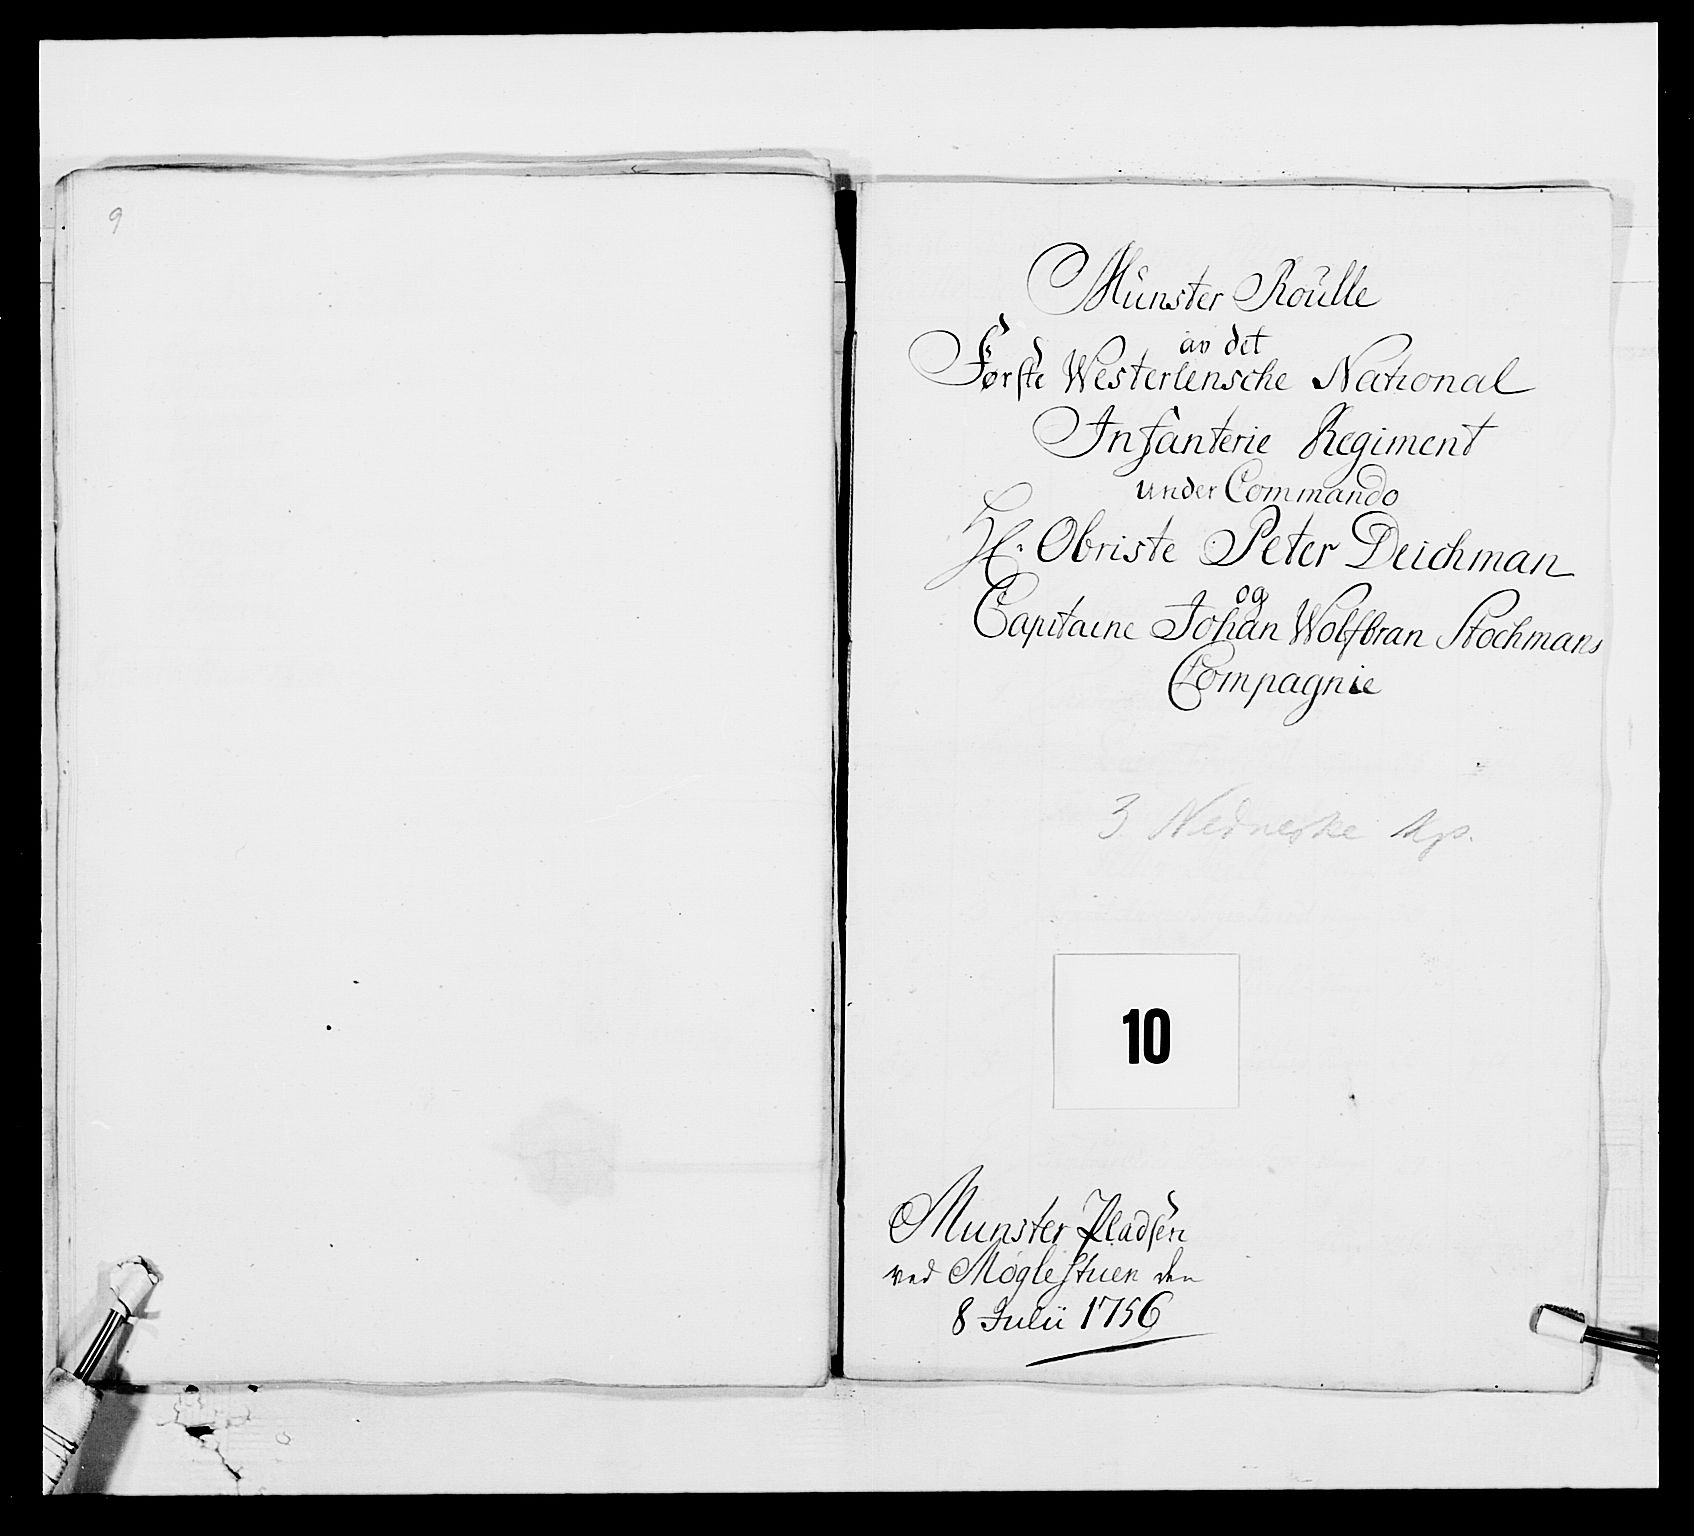 9
Münster Roülle
av det
Første Westerlensche National
Infanterie Regiment
under Commando
H: Obriste Peter Deichman
og
Capitaine Johan Wolfbran Stochmans
Compagnie
3 Nedneske Kp.
10
Munster Pladsen
ved Møglestuen den
8 Julii 1756